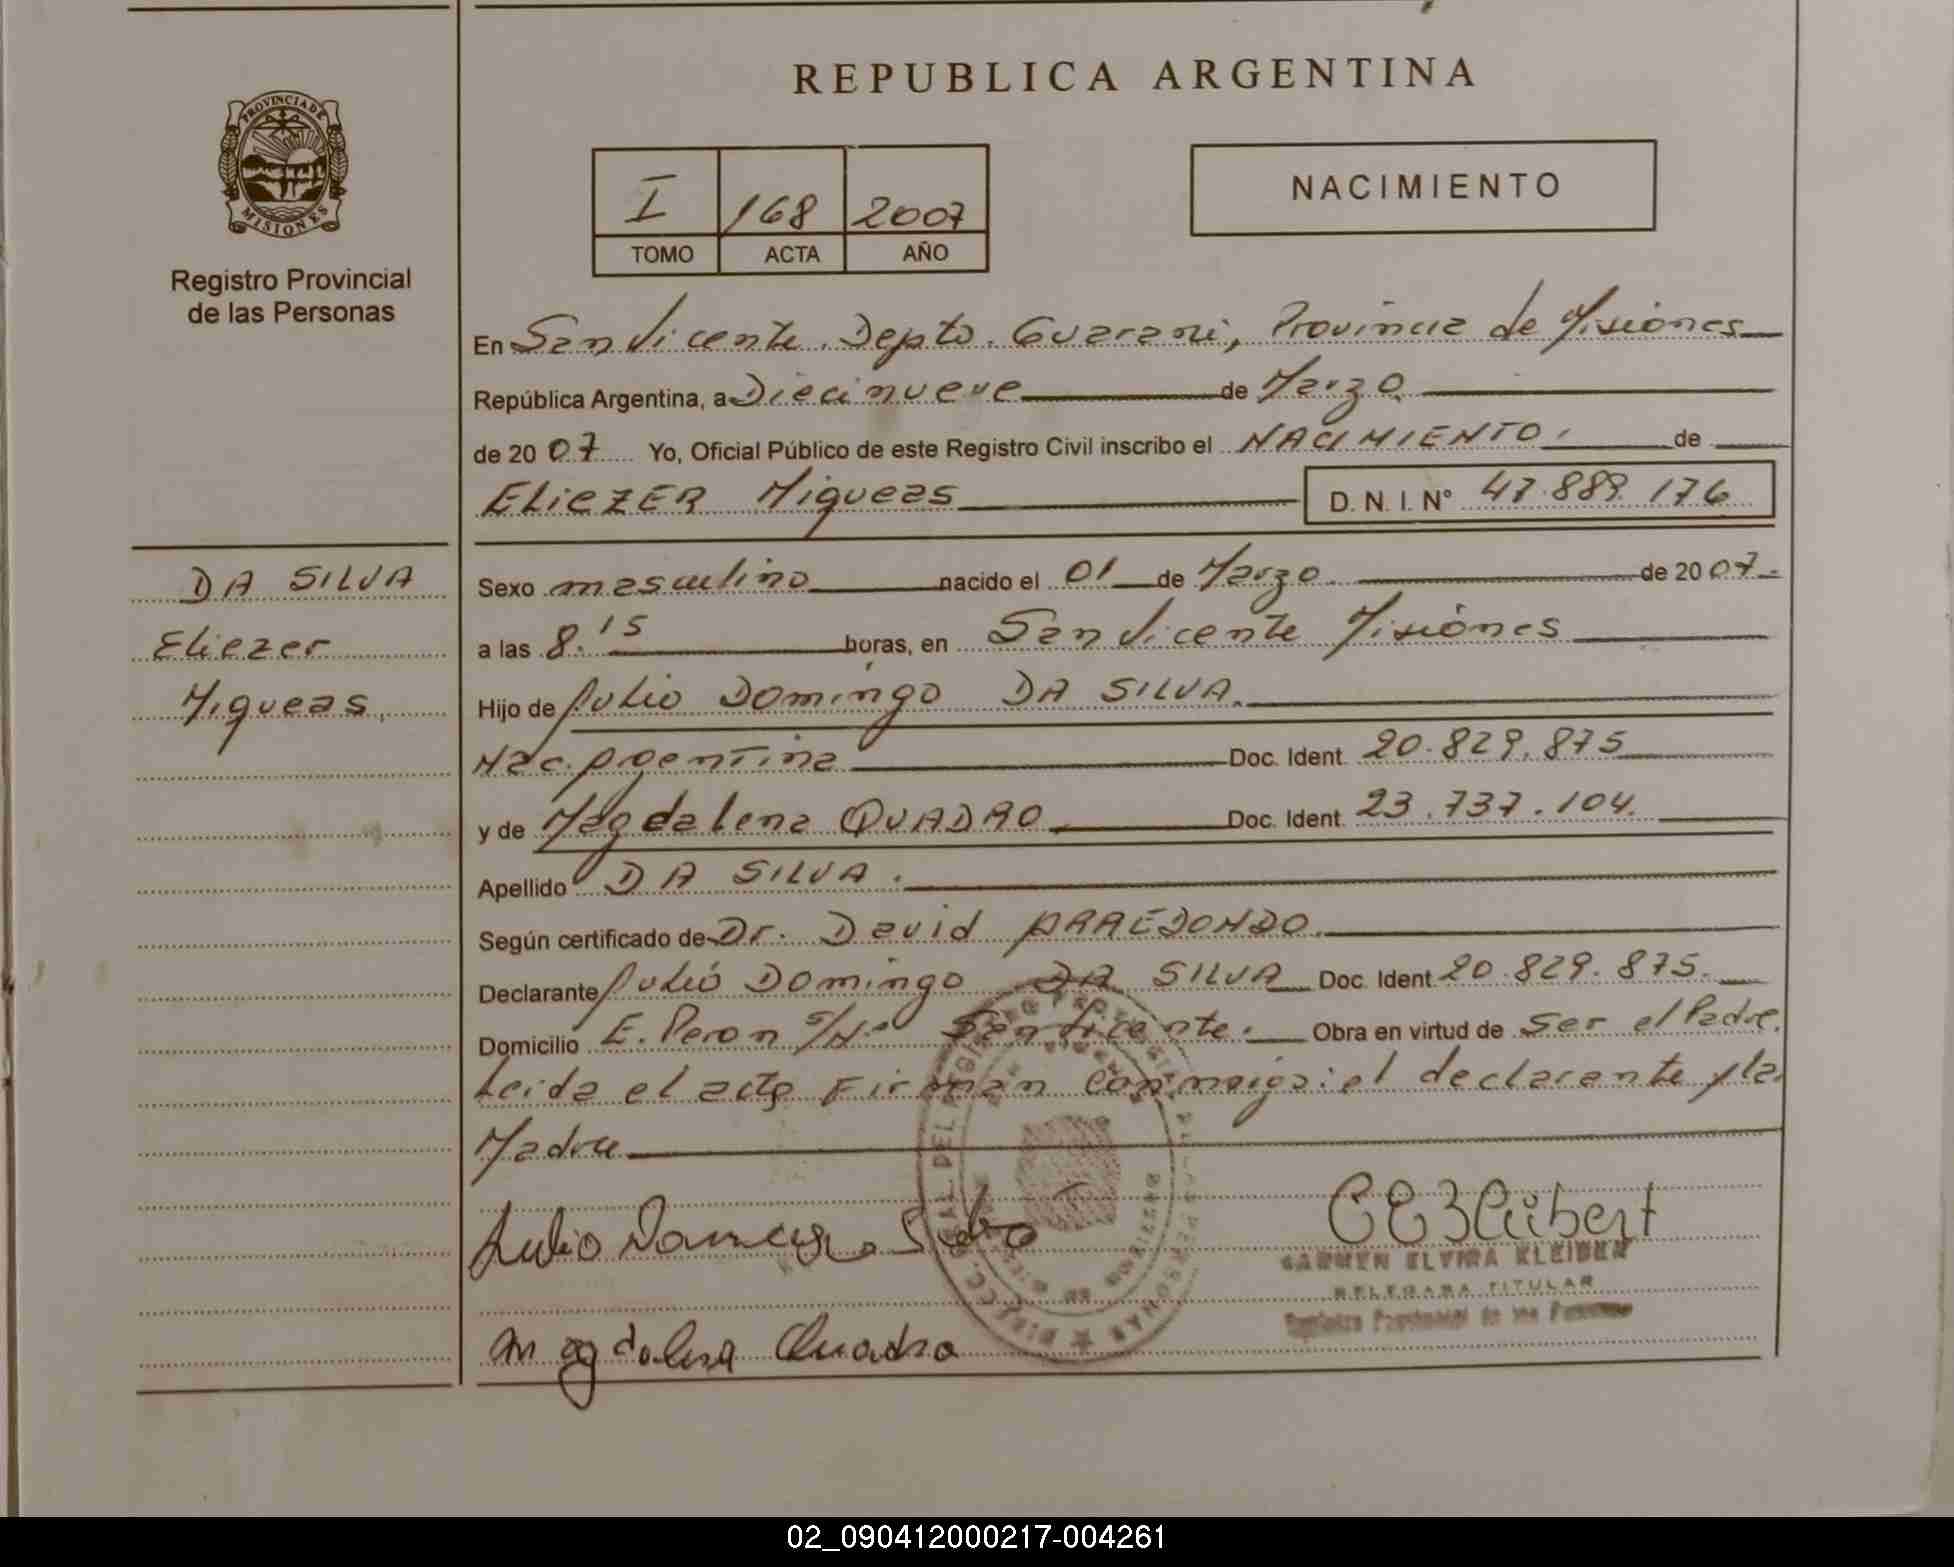 REPUBLICA ARGENTINA
PROVINCIA DE
MISIONES
Registro Provincial
de las Personas
I 168 2007
TOMO ACTA AÑO
NACIMIENTO
En San Vicente. Depto. Guarani, Provincia de Misiones
República Argentina, a Diecinueve de Marzo.
de 2007 Yo, Oficial Público de este Registro Civil inscribo el NACIMIENTO. de
ELIEZER Miqueas D. N. I. N° 47.889.176
DA SILVA
Eliezer
Miqueas.
Sexo masculino nacido el 01 de Marzo de 2007.
a las 8.15 horas, en San Vicente Misiónes
Hijo de Julio Domingo DA SILVA.
Nac. Argentina Doc. Ident. 20.829.875
y de Magdalena QUADRO Doc. Ident. 23.737.104.
Apellido DA SILVA.
Según certificado de Dr. David ARREDONDO.
Declarante Julió Domingo DA SILVA Doc. Ident. 20.829.875.
Domicilio E. Peron S/N° San Vicente. Obra en virtud de ser el Padre.
Leida el acta Firman conmigo: el declarante y la
Madre
Julio Domingo Silva
CARMEN ELVIRA
DELEGADA TITULAR
Registro Provincial de las Personas
Magdalena Quadro
02_090412000217-004261